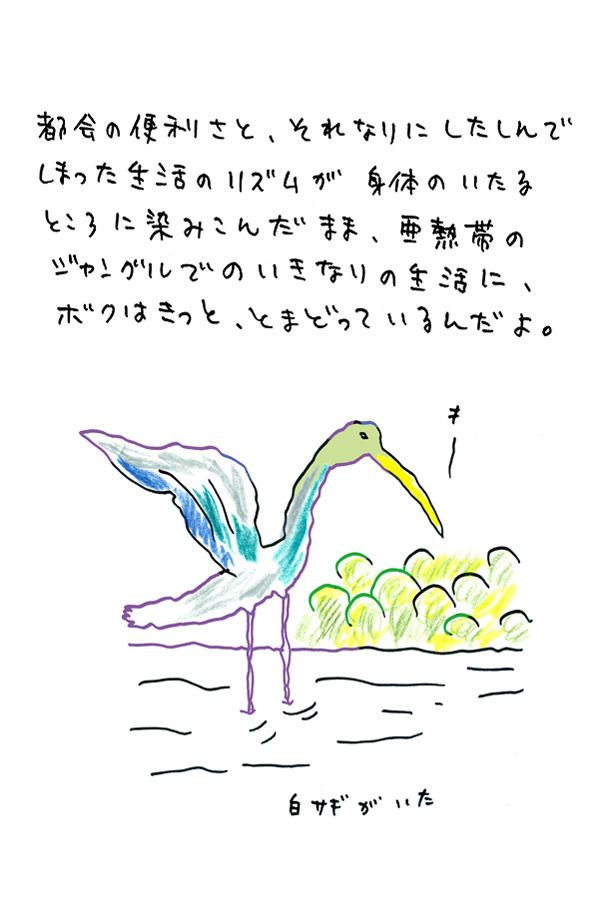 都会の便利さと、それなりにしたしんで
しまった生活のリズムが 身体のいたる
ところに染みこんだまま、亜熱帯の
ジャングルでのいきなりの生活に、
ボクはきっと、とまどっているんだよ。
キー
白サギがいた